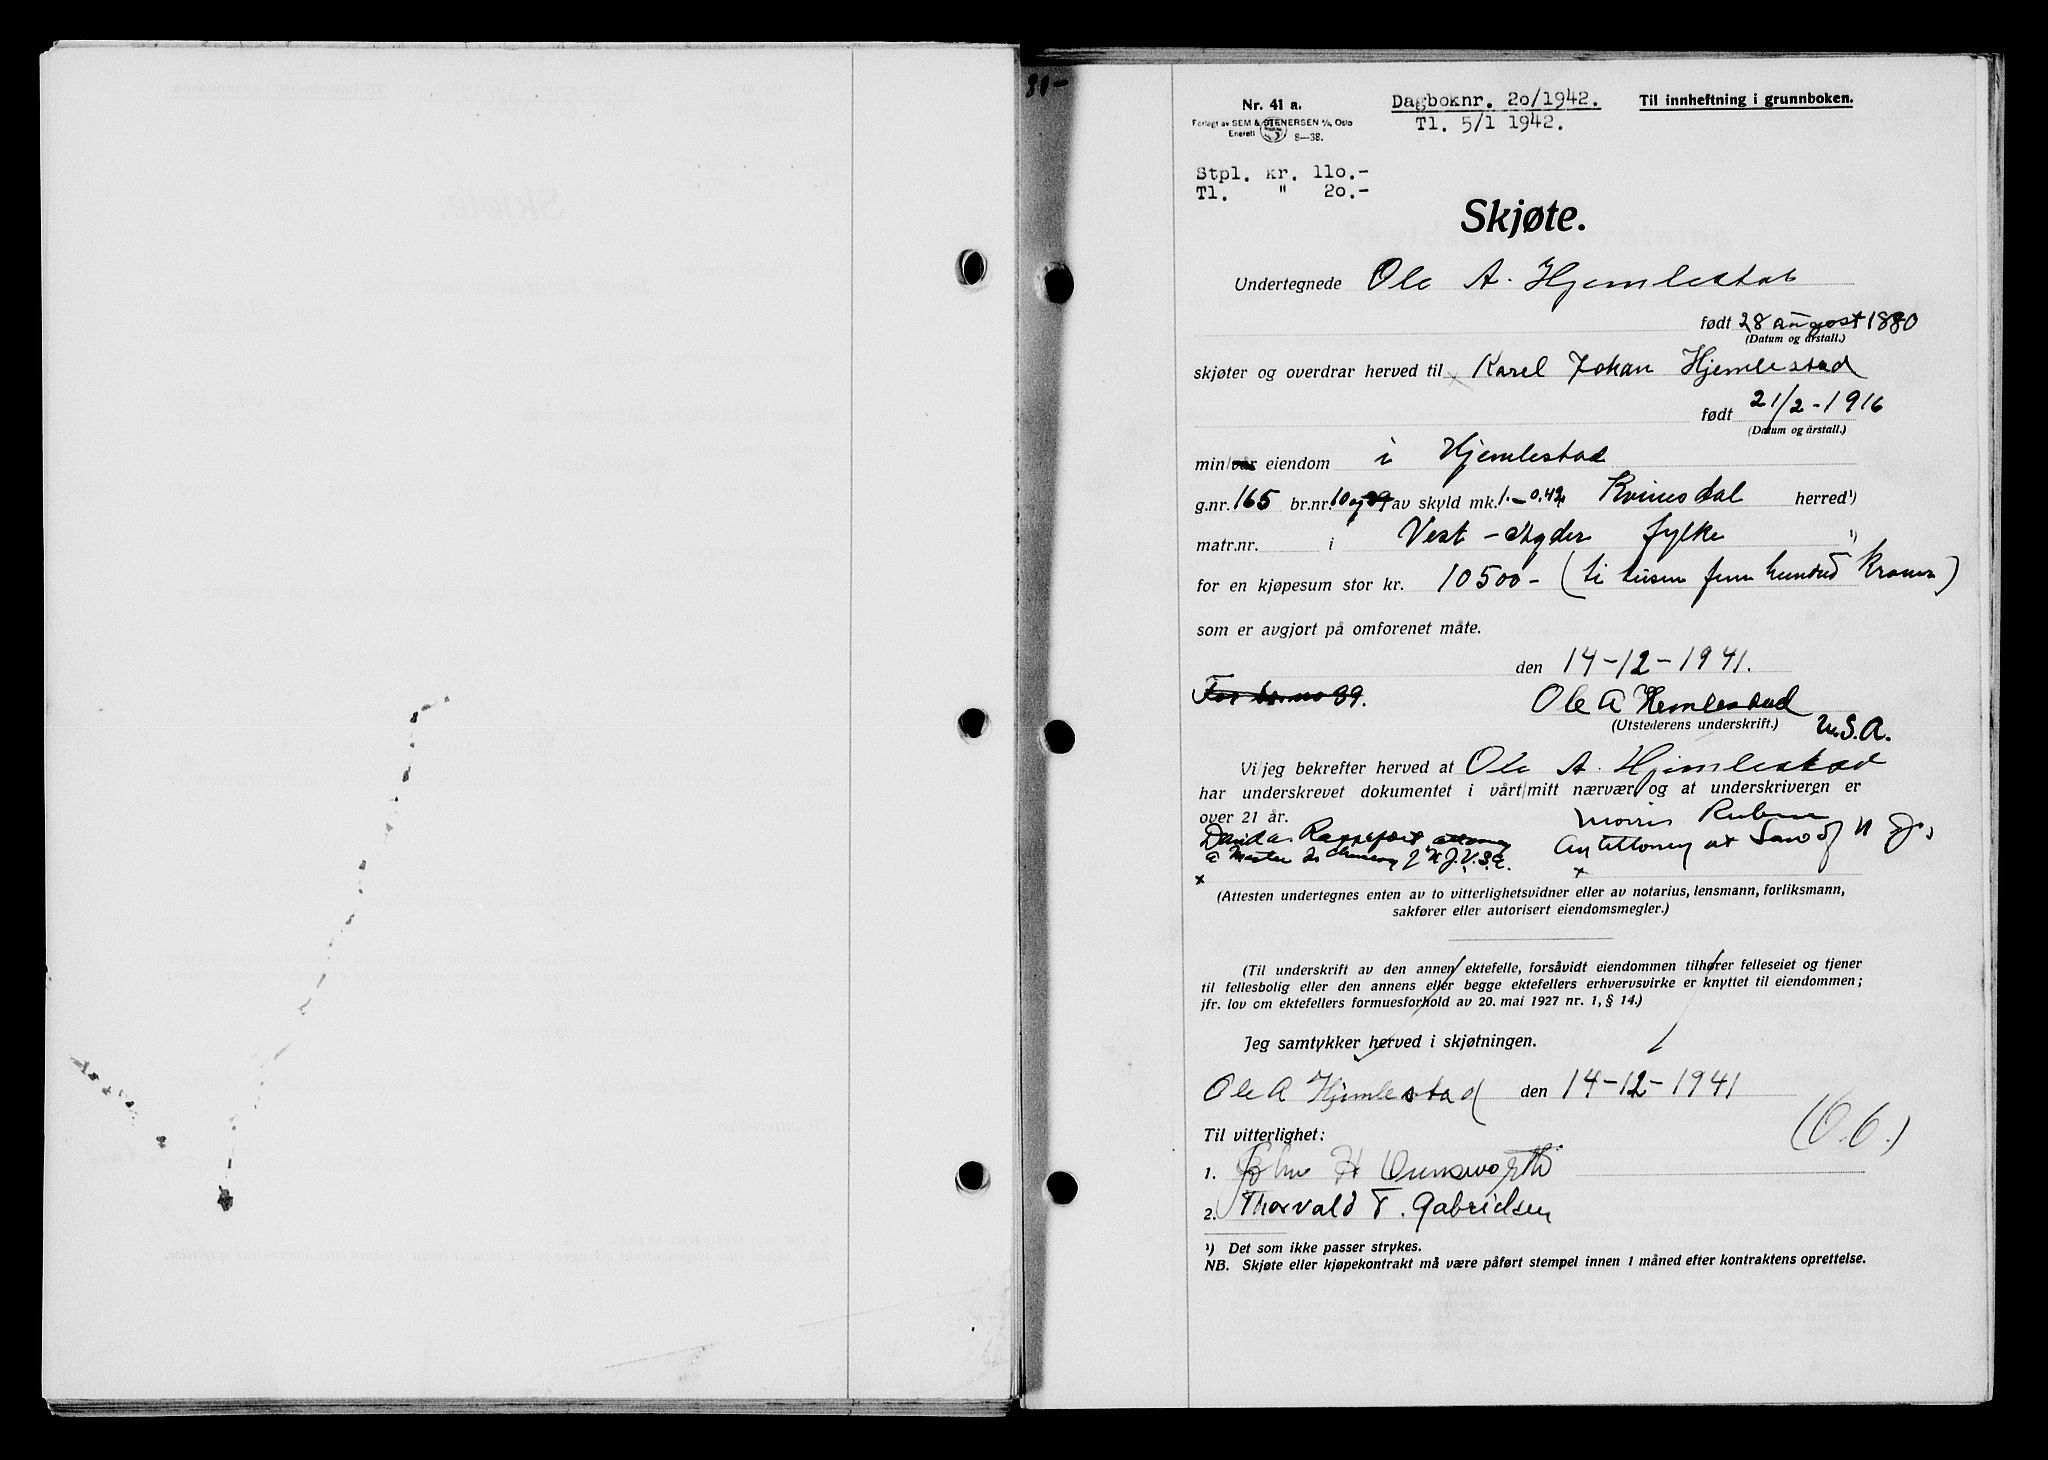 31-
Nr. 41 a.
Dagboknr. 20/1942.
Til innheftning i grunnboken.
Forlagt av SEM & STENERSEN A/S, Oslo
Enerett 8—38.
Tl. 5/1 1942.
Stpl. kr. 110.-
Tl. " 20.-
Skjøte.
Undertegnede Ole A. Hjemlestad
født 28 august 1880
(Datum og årstall.)
skjøter og overdrar herved til Karel Johan Hjemlestad
født 21/2-1916
(Datum og årstall.)
min/vår eiendom i Hjemlestad
g.nr. 165 br.nr. 10 og 39 av skyld mk. 1.-0,42 Kvinesdal herred¹)
matr.nr. i Vest-Agder fylke ¹)
for en kjøpesum stor kr. 10500- (ti tusen fem hundred Kroner)
som er avgjort på omforenet måte.
den 14-12-1941.
For br.no 39.
Ole A Hemlestad
(Utstederens underskrift.)
U.S.A.
Vi/jeg bekrefter herved at Ole A. Hjemlestad
har underskrevet dokumentet i vårt/mitt nærvær og at underskriveren er
over 21 år.
Morris Rubin
David A. Rappeport attorney
a Master in Chancery of N.J. U.S.A.
An Attorney at Law of N J.
(Attesten undertegnes enten av to vitterlighetsvidner eller av notarius, lensmann, forliksmann,
sakfører eller autorisert eiendomsmegler.)
(Til underskrift av den annen ektefelle, forsåvidt eiendommen tilhører felleseiet og tjener
til fellesbolig eller den annens eller begge ektefellers erhvervsvirke er knyttet til eiendommen;
jfr. lov om ektefellers formuesforhold av 20. mai 1927 nr. 1, § 14.)
Jeg samtykker herved i skjøtningen.
Ole A Hjemlestad den 14-12-1941
(O.6.)
Til vitterlighet:
1. John H
2. Thorvald T. Gabrielsen
¹) Det som ikke passer strykes.
NB. Skjøte eller kjøpekontrakt må være påført stempel innen 1 måned efter kontraktens oprettelse.